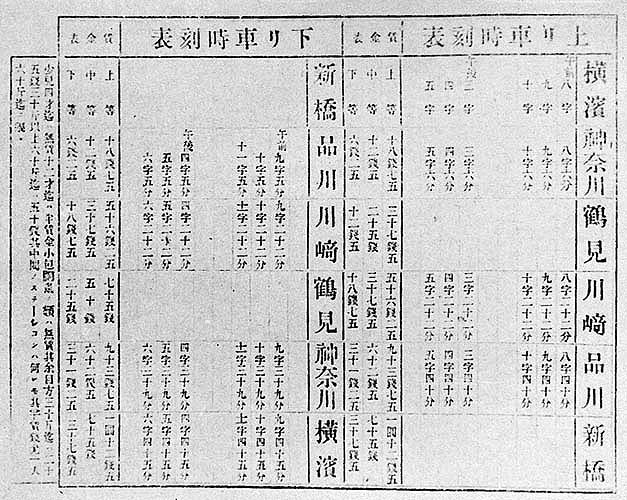 上リ車時刻表
橫濱 神奈川 鶴見 川﨑 品川 新橋
午前 八字 八字六分 八字二十二分 八字四十分
九字 九字六分 九字二十二分 九字四十分
十字 十字六分 十字二十二分 十字四十分
午後 三字 三字六分 三字二十二分 三字四十分
四字 四字二十二分 四字四十分
五字 五字六分 五字二十二分 五字四十分
賃金表
上等 十八錢七五 三十七錢五 五十六錢二五 九十三錢七五 一圓十二錢五
中等 十二錢五 二十五錢 三十七錢五 六十二錢五 七十五錢
下等 六錢二五 十二錢五 十八錢七五 三十一錢二五 三十七錢五
下リ車時刻表
新橋 品川 川﨑 鶴見 神奈川 橫濱
午前 九字五分 九字二十二分 九字三十九分 九字四十五分
十字五分 十字二十二分 十字三十九分 十字四十五分
十一字五分 十一字二十二分 十一字三十九分 十一字四十五分
午後 四字五分 四字二十二分 四字三十九分 四字四十五分
五字五分 五字二十二分 五字三十九分 五字四十五分
六字五分 六字二十二分 六字三十九分 六字四十五分
賃金表
上等 十八錢七五 五十六錢二五 七十五錢 九十三錢七五 一圓十二錢五
中等 十二錢五 三十七錢五 五十錢 六十二錢五 七十五錢
下等 六錢二五 十八錢七五 二十五錢 三十一錢二五 三十七錢五
小兒四才迄ハ無賃十二才迄ハ半賃金小包 類ハ無賃其余目方三十斤迄ハ二十
五錢三十斤以上六十斤迄ハ五十錢其中間ノステーションハ何レモ其 賃錢尤一人
六十斤迄ヲ限ル